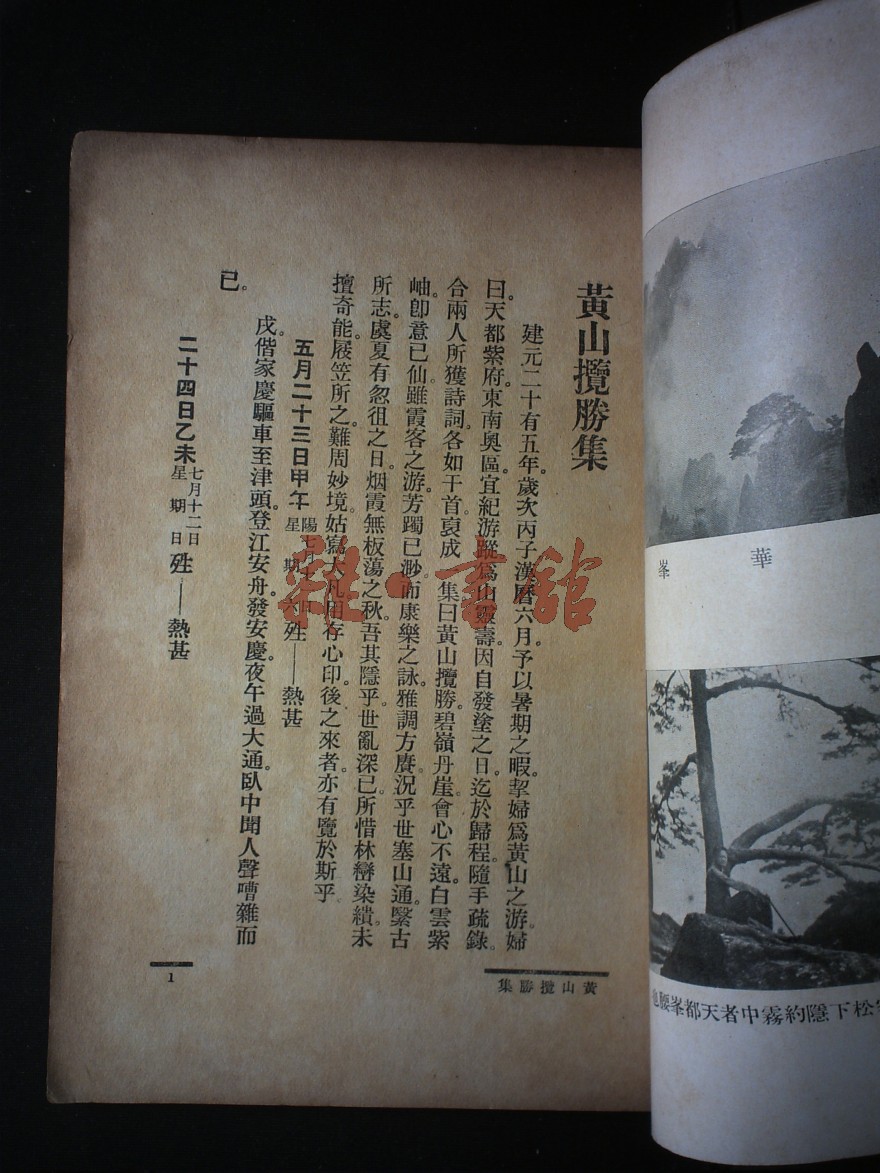 黃山攬勝集
建元二十有五年。歲次丙子漢曆六月。予以暑期之暇。挈婦爲黃山之游。婦
曰。天都紫府。東南奧區。宜紀游蹤。爲山靈壽。因自發塗之日。迄於歸程。隨手疏錄。
合兩人所獲詩詞。各如干首。裒成 集。曰黃山攬勝。碧嶺丹崖。會心不遠。白雲紫
岫。卽意已仙。雖霞客之游。芳躅已渺。而康樂之詠。雅調方賡。況乎世塞山通。繄古
所志。虞夏有忽徂之日。烟霞無板蕩之秋。吾其隱乎。世亂深已。所惜林巒染繢。未
擅奇能。屐笠所之。難周妙境。姑寫大凡。用存心印。後之來者。亦有覽於斯乎
五月二十三日甲午 陽七月 日 星期六 夝——熱甚
戌。偕家慶驅車至津頭。登江安舟。發安慶。夜午過大通。臥中聞人聲嘈雜而
已。
二十四日乙未 七月十二日 星期日 夝——熱甚
黃山攬勝集
1
華 峯
松下隱約霧中者天都峯腰也
雜·書館